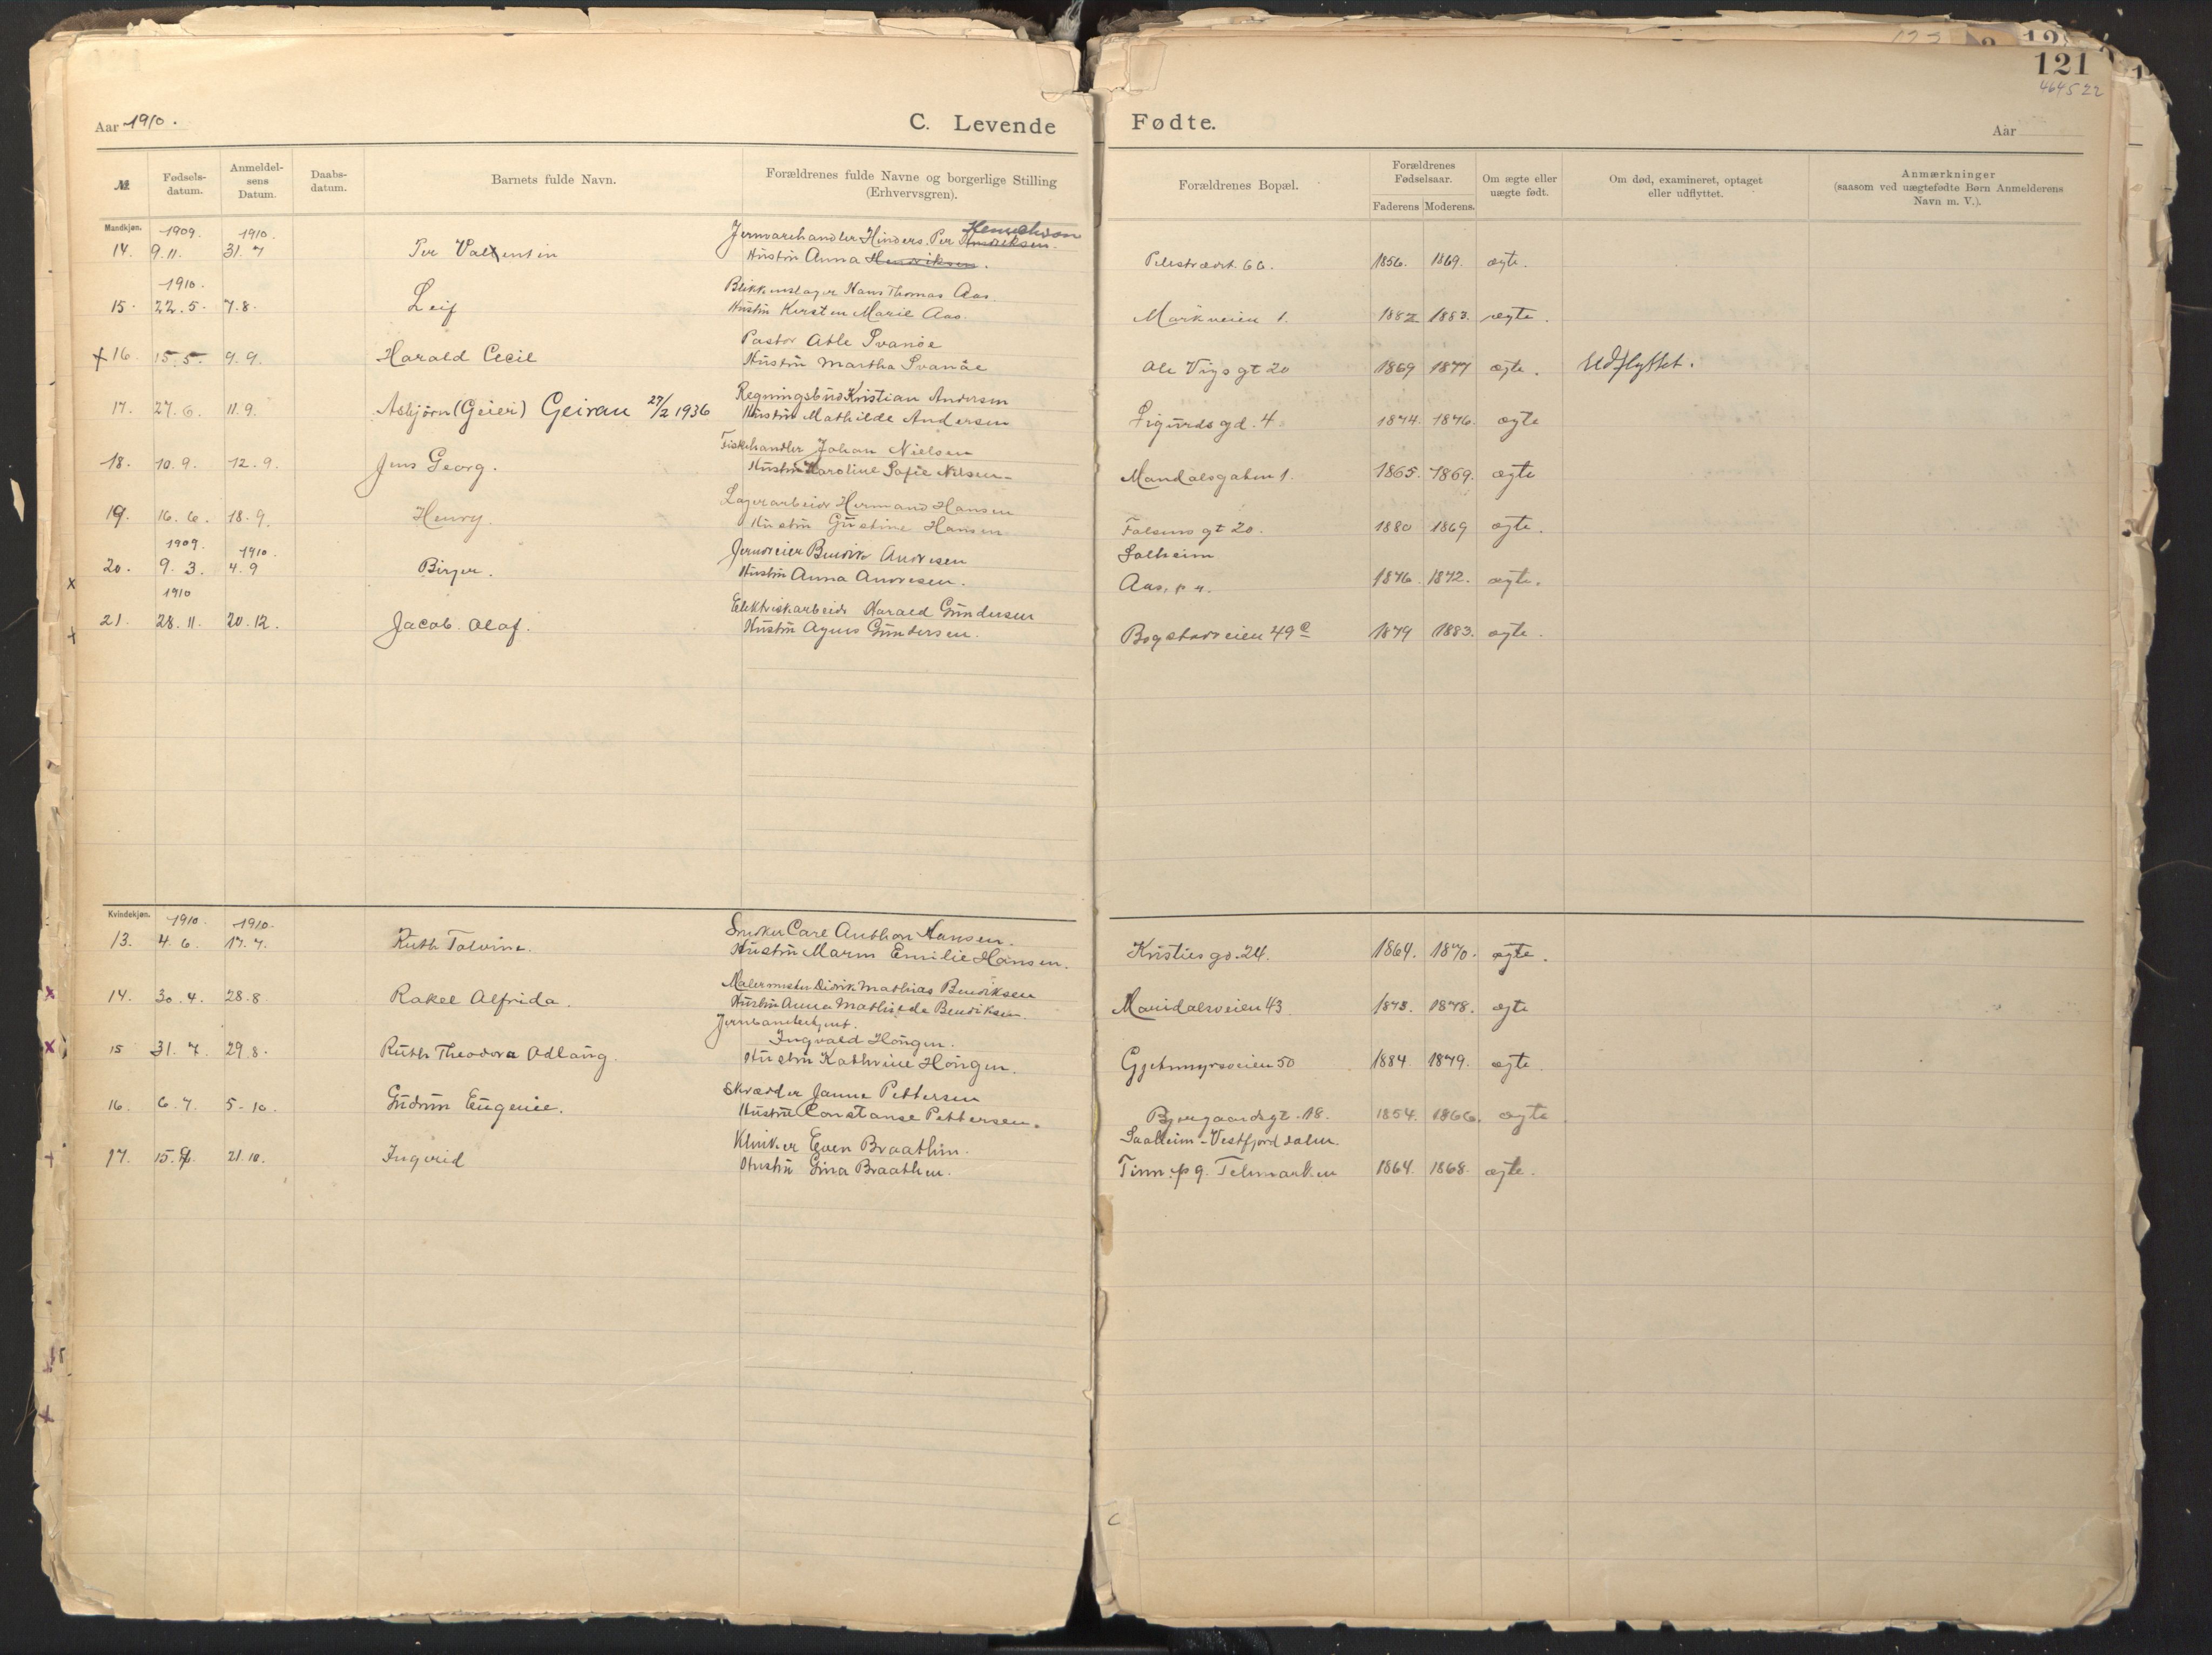 121
464522
Aar 1910.
C. Levende Fødte.
Aar
№
Fødsels-datum.
Anmeldel-sens Datum.
Daabs-datum.
Barnets fulde Navn.
Forældrenes fulde Navne og borgerlige Stilling (Erhvervsgren).
Forældrenes Bopæl.
Forældrenes Fødselsaar.
Faderens Moderens.
Om ægte eller uægte født.
Om død, examineret, optaget eller udflyttet.
Anmærkninger (saasom ved uægtefødte Børn Anmelderens Navn m. V.).
Mandkjøn.
1909. 1910. Jernvarehandler Hinders. Per
14. 9.11. 31.7 Per Valentin Hustru Anna Henriksen. Pilestrædet. 66. 1856. 1869. ægte.
1910. Blikkenslager Hans Thomas Aas.
15. 22.5. 7.8. Leif Hustru Kirsten Marie Aas. Markveien 1. 1882 1883. ægte.
Pastor Able Svanöe
+16. 15.5. 9.9. Harald Cecil Hustru Martha Svanöe Ole Vigs gt 20 1869 1877 ægte. Udflyttet.
Regningsbud Kristian Andersen
17. 27.6. 11.9. Asbjörn (Geier) Geirau 27/2 1936 Hustru Mathilde Andersen Sigurds gd. 4. 1874. 1876. ægte
Fiskehandler Johan Nielsen
18. 10.9. 12.9. Jens Georg. Hustru Karoline Sofie Nilsen Mandalsgaten 1. 1865. 1869. ægte
Lagerarbeider Hermand Hansen
19. 16.6. 18.9. Henry. Hustru Gustine Hansen Falsens gt 20. 1880 1869 ægte.
1909. 1910. Jerndreier Bendik Andresen Solheim
20. 9.3. 4.9 Birger. Hustru Anna Andresen. Aas, p 4. 1876. 1872. ægte.
x
1910 Elektriskarbeider Harald Gundersen
21. 28.11. 20.12. Jacob. Olaf. Hustru Agnes Gundersen. Bogstadveien 49 1879 1883. ægte.
+
Kvindekjøn.
1910. 1910. Snedker Carl Anthon Hansen.
13. 4.6. 17.7. Ruth Tolvine. Hustru Maren Emilie Hansen. Kristies gd. 24. 1864. 1870. ægte.
Malermester Didrik Mathias Bendiksen
x 14. 30.4. 28.8. Rakel Alfrida. Hustru Anna Mathilde Bendiksen. Maridalsveien 43 1873. 1878. ægte
Jernbanebetjent.
Ingvald Höngen.
x 15 31.7. 29.8. Ruth Theodora Adlaug. Hustru Kathrine Höngen. Gjetemyrsveien 50 1884. 1879. ægte.
Skrædder Janne Pettersen
16. 6.7. 5-10. Gudrun Eugenie. Hustru Constanse Pettersen. Bjergaardsgt. 18. 1854. 1866. ægte
Klinker Even Braathen. Saaheim - Vestfjorddalen.
+ 17. 15. 21.10. Ingerid Hustru Gina Braathen. Tinn. pg. Telemarken 1864. 1868. ægte.